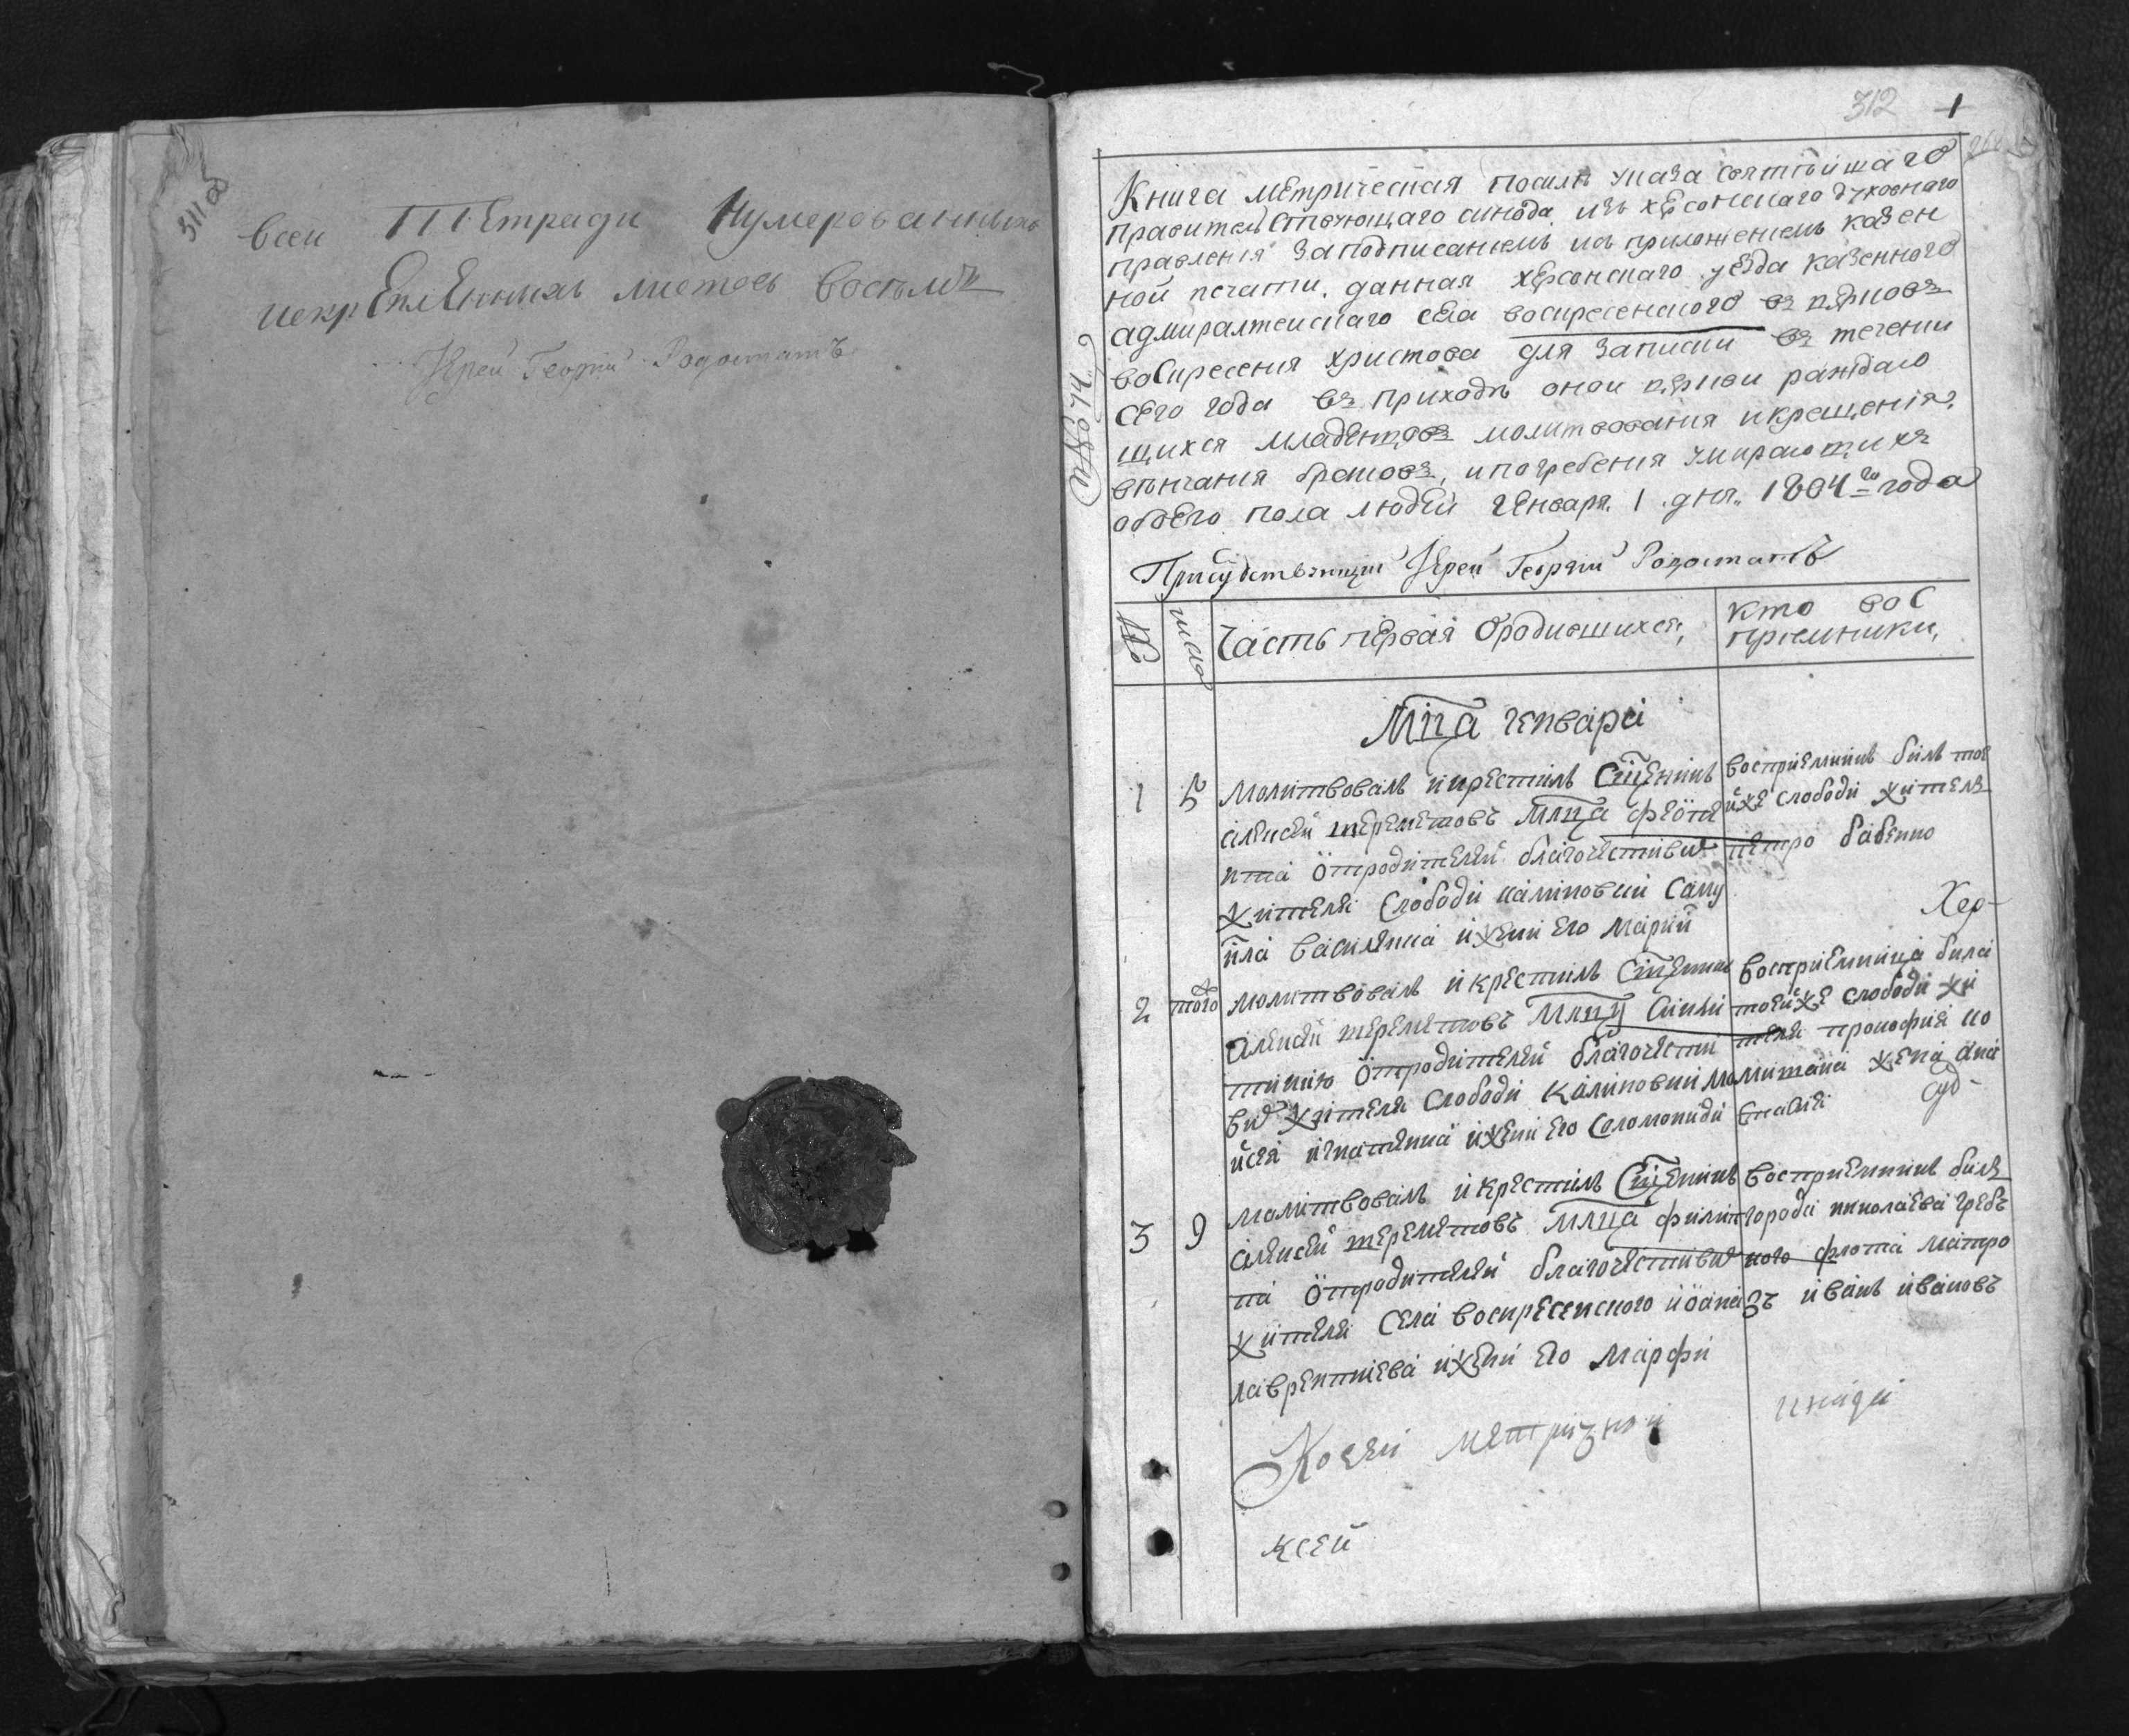 311 об
всей Тетради Нумерованныхъ
искрЕплЕнныхъ листовъ восѣмъ
Іерей Георгій Родостатъ
312 1
№ 74
Книга мЕтрическая посилѣ указа святѣйшаго
правителствующаго синода изъ хЕрсонскаго духовнаго
правленія заподписаніемъ исъ приложеніемъ казен
ной печати. данная хЕрсонскаго уезда казенного
адмиралтейскаго сЕла воскресенского въ цЕрковъ
воскресения христова для записки въ течении
сЕго года въ приходѣ оной цЕркви раждаю
щихся младЕнцовъ молитвования икрещенія,
вѣнчания браковъ, ипогребения умирающихъ
обоЕго пола людЕй гЕнваря 1 дня 1804го года
Присудствующій Іерей Георгій Родостатъ
№ числа Часть пЕрваяОродившихся, кто вос
приемники,
Мца гЕнваря
1 5 Молитвовалъ икрЕстилъ СщЕникъ
алЕксЕй шЕрЕмЕтовъ Млца фЕокти
ста ӧтродитЕлЕй благочЕстивихъ
житЕля Слободи калиновки Саму
ила василЕнка ижЕни Его Марии
восприЕмникъ билъ тоЕ
йжЕ слободи житЕлъ
пЕтро бабЕнко
Хер-
2 того молитвовалъ икрЕстилъ СщЕникъ
алЕксЕй шЕрЕмЕтовъ Млцу Синкли
тикию ӧтродитЕлЕй благочЕсти
вихъ житЕля Слободи Калиновки Мо
йсЕя игнатЕнка ижЕни Его Соломониди
восприЕмница била
тоЕйжЕ слободи жи
тЕля прокофия ко
жЕна ана
стасия суд-
3 9 молитвовалъ икрЕстилъ СщЕникъ
алЕксЕй шЕрЕмЕтовъ млца филип
па ӧтродитЕлЕй благочЕстивихъ
житЕля СЕла воскрЕсЕнского иоана
лаврЕнтиЕва ижЕни Его Марфи
восприЕмникъ билъ
города николаЕва грЕб
ного флота матро
зъ иванъ ивановъ
КоЕЕй мЕтризной книги
ксЕй